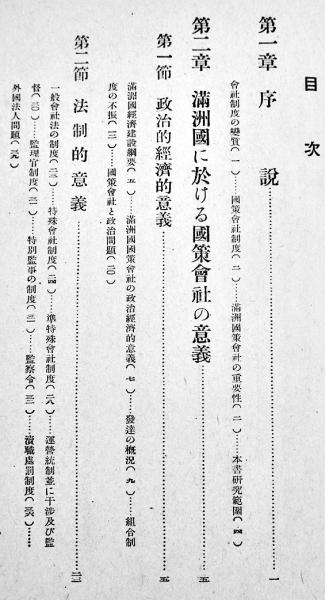 目次
第一章 序說……一
會社制度の變質(一)……國策會社制度(二)……滿洲國策會社の重要性(二)……本書研究範圍(四)……
第二章 滿洲國に於ける國策會社の意義……五
第一節 政治的經濟的意義……五
滿洲國經濟建設綱要(五)……滿洲國國策會社の政治經濟的意義(七)……發達の槪況(九)……組合制
度の不振(一三)……國策會社と政治問題(二〇)
第二節 法制的意義……二三
一般會社法の制度(二三)……特殊會社制度(二四)……準特殊會社制度(二八)……運營統制並に干涉及び監
督(三〇)……監理官制度(三一)……特別監事の制度(三一)……監察令(三三)……瀆職處罰制度(三六)……
外國法人問題(三九)